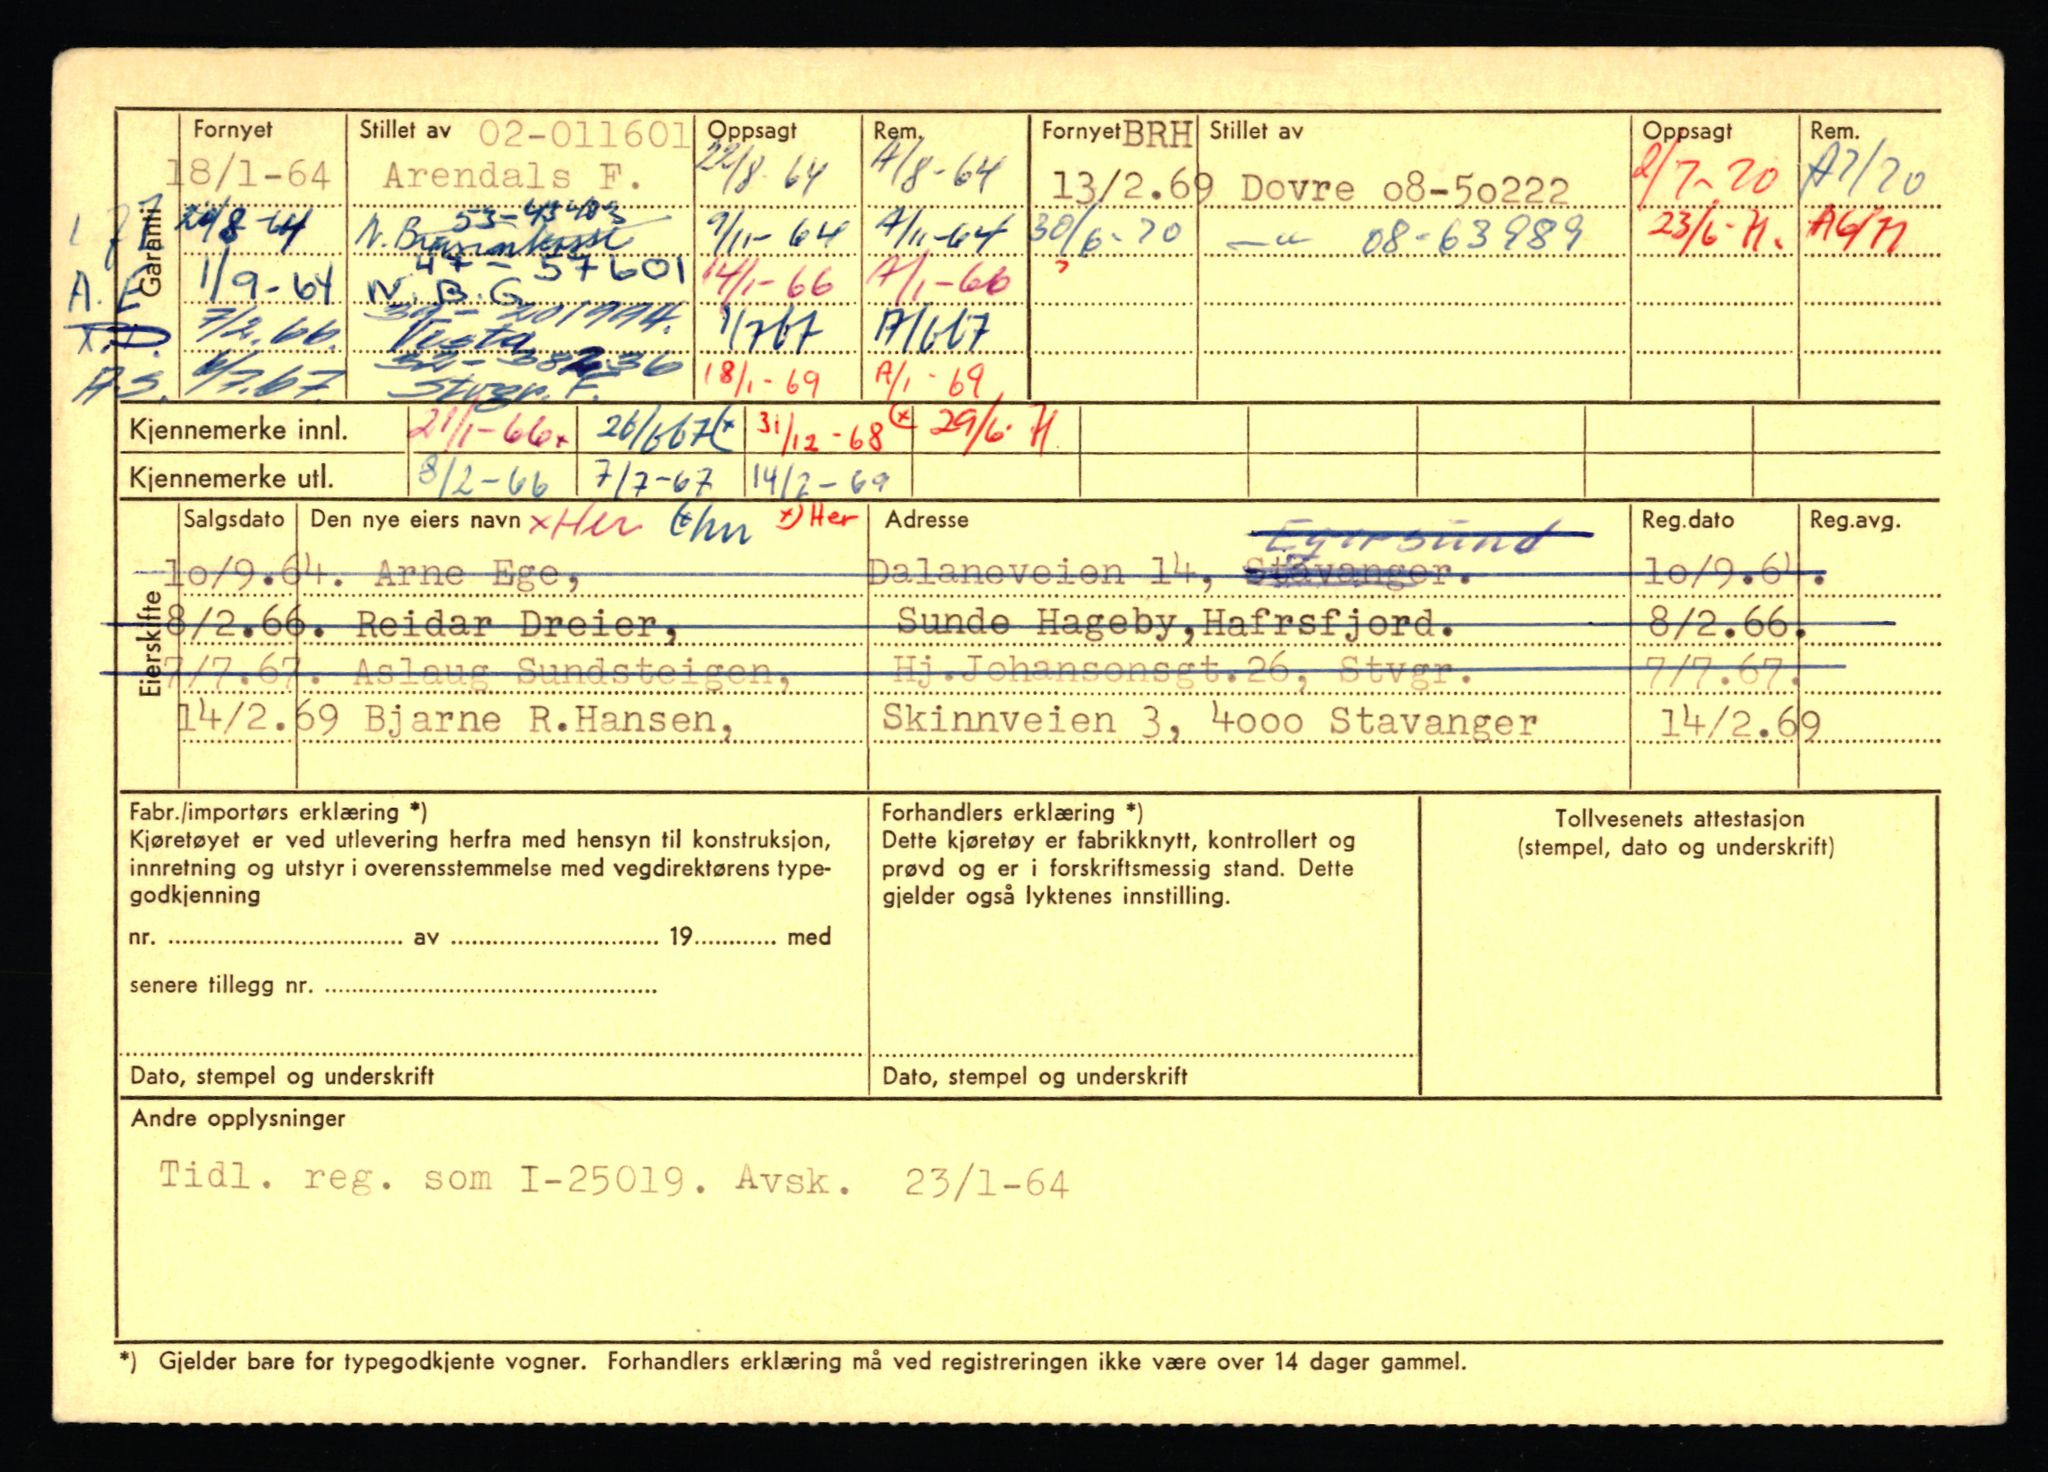 Garanti
Fornyet Stillet av 02-011601 Oppsagt Rem. Fornyet BRH Stillet av Oppsagt Rem.
18/1-64 Arendals F. 22/8-64 A/8-64 13/2.69 Dovre o8-5o222 2/7-70 A7/70
53-43403
8-64 N. 9/11-64 A/11-64 30/6-70 —"— 08-63989 23/6-71. A6/71
47-57601
A. E 1/9-64 N.B.G 14/1-66 A/1-66
7/2.66. Vesta 1/767 A/667
A.S. 6/7.67. Stvgr. F. 18/1-69 A/1-69
Kjennemerke innl. 21/1-66x 26/667(x 31/12-68(x 29/6-71
Kjennemerke utl. 8/2-66 7/7-67 14/2-69
Eierskifte
Salgsdato Den nye eiers navn xHer (x hn x) Her Adresse Reg.dato Reg.avg.
Egersund
1o/9.64. Arne Ege, Dalaneveien 14, Stavanger. 1o/9.64.
8/2.66. Reidar Dreier, Sunde Hageby,Hafrsfjord. 8/2.66.
7/7.67. Aslaug Sundsteigen, Hj.Johansonsgt.26, Stvgr. 7/7.67.
14/2.69 Bjarne R.Hansen, Skinnveien 3, 4ooo Stavanger 14/2.69
Fabr./importørs erklæring *)
Kjøretøyet er ved utlevering herfra med hensyn til konstruksjon,
innretning og utstyr i overensstemmelse med vegdirektørens type-
godkjenning
nr. ........ av ........ 19........ med
senere tillegg nr. ........
Dato, stempel og underskrift
Forhandlers erklæring *)
Dette kjøretøy er fabrikknytt, kontrollert og
prøvd og er i forskriftsmessig stand. Dette
gjelder også lyktenes innstilling.
Dato, stempel og underskrift
Tollvesenets attestasjon
(stempel, dato og underskrift)
Andre opplysninger
Tidl. reg. som I-25019. Avsk. 23/1-64
*) Gjelder bare for typegodkjente vogner. Forhandlers erklæring må ved registreringen ikke være over 14 dager gammel.